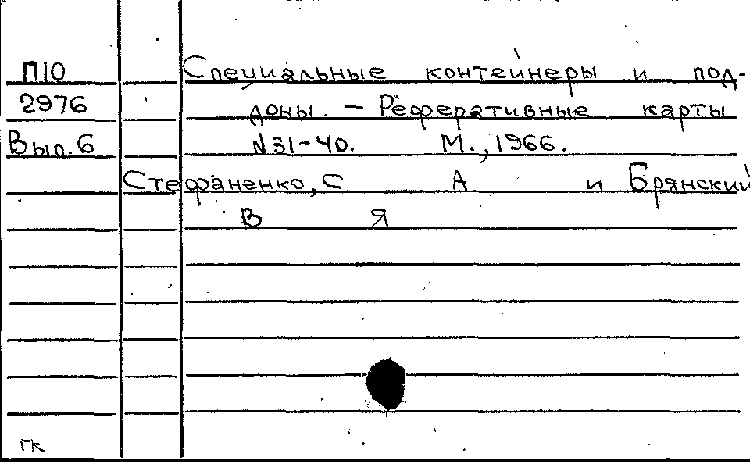 П10 Специальные контейнеры и под-
2976 доны. — Реферативные карты
Вып.6 N31-40. М., 1966.
Стефаненко, С А и Брянский
В Я
ГК